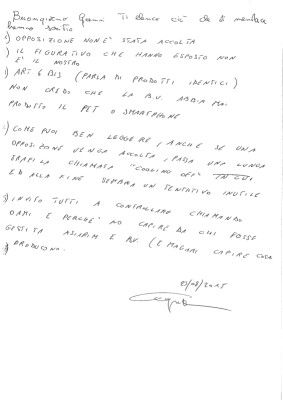 Buongiorno Gianni Ti elenco ciò che di mendace
hanno scritto
1) OPPOSIZIONE NON È STATA ACCOLTA
2) IL FIGURATIVO CHE HANNO ESPOSTO NON
È IL NOSTRO
3) ART 6 BIS (PARLA DI PRODOTTI IDENTICI)
NON CREDO CHE LA B.V. ABBIA MAI
PRODOTTO IL PET O SMARTPHONE
4) COME PUOI BEN LEGGERE, ANCHE SE UNA
OPPOSIZIONE VENGA ACCOLTA, PASSA UNA LUNGA
TRAFILA CHIAMATA "COOLING OFF"
ED ALLA FINE SEMBRA UN TENTATIVO INUTILE
5) INVITO TUTTI A CONTROLLARE CHIAMANDO
OAMI E PERCHE' NO CAPIRE DA CHI FOSSE
GESTITA B.V. (E MAGARI CAPIRE COSA
PRODUCONO.